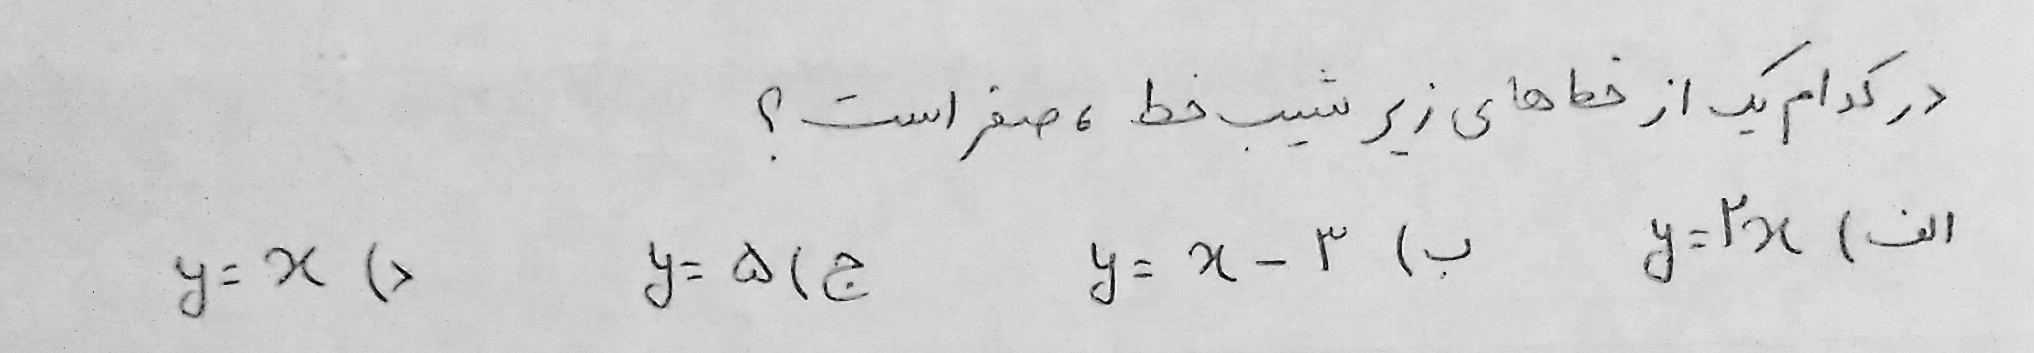 در کدام یک از خط های زیر شیب خط ، صفر است ؟
الف ) y=۲x ب ) y = x - ۳ ج ) y= ۵ د ) y = x